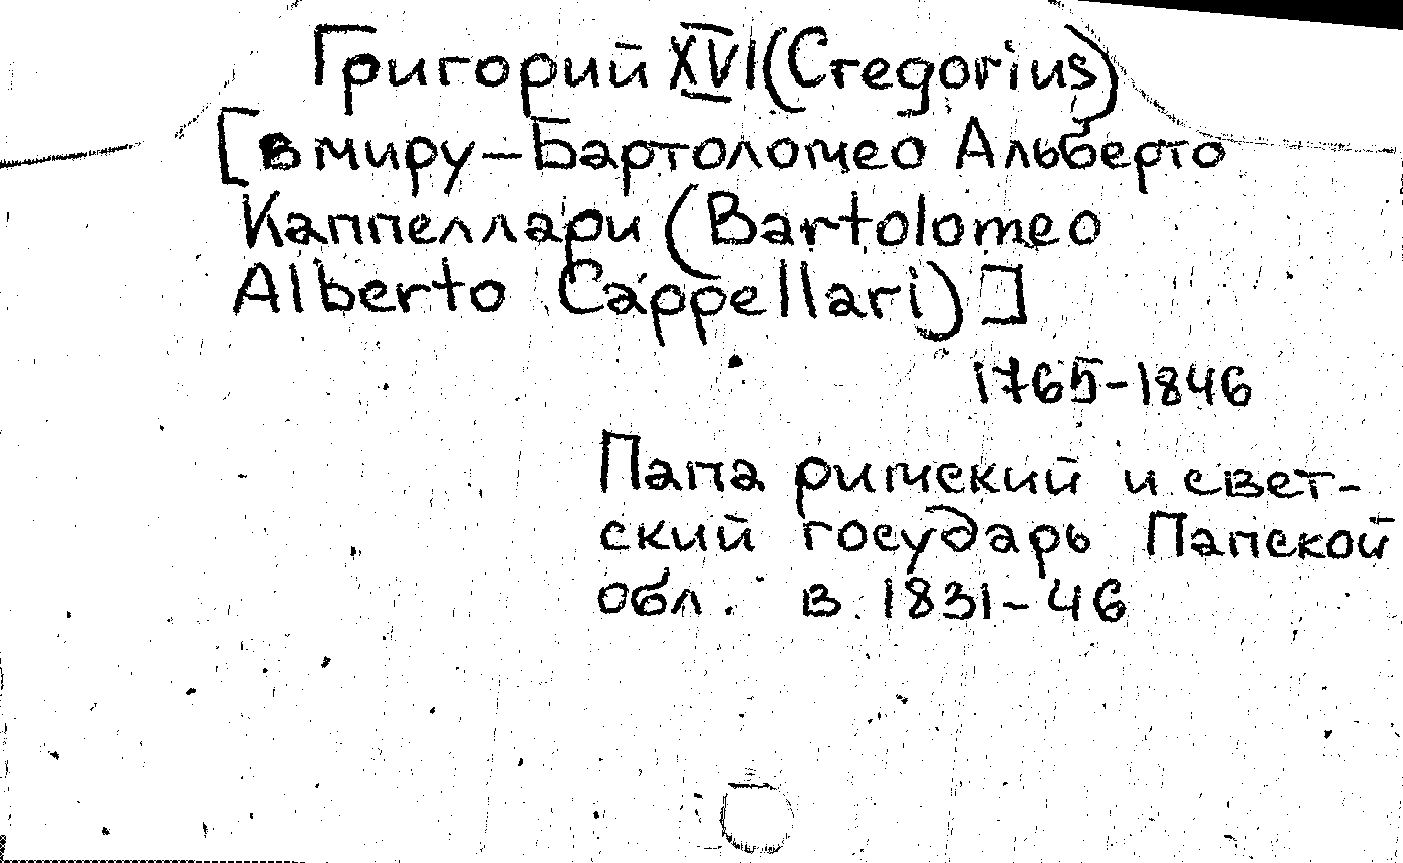 Григорий XVI (Gregorius)
[в миру – Бартоломео Альберто
Каппеллари (Bartolomeo
Alberto Cappellari)]
1765-1846
Папа римский и свет-
ский государь Папской
обл. в 1831-46